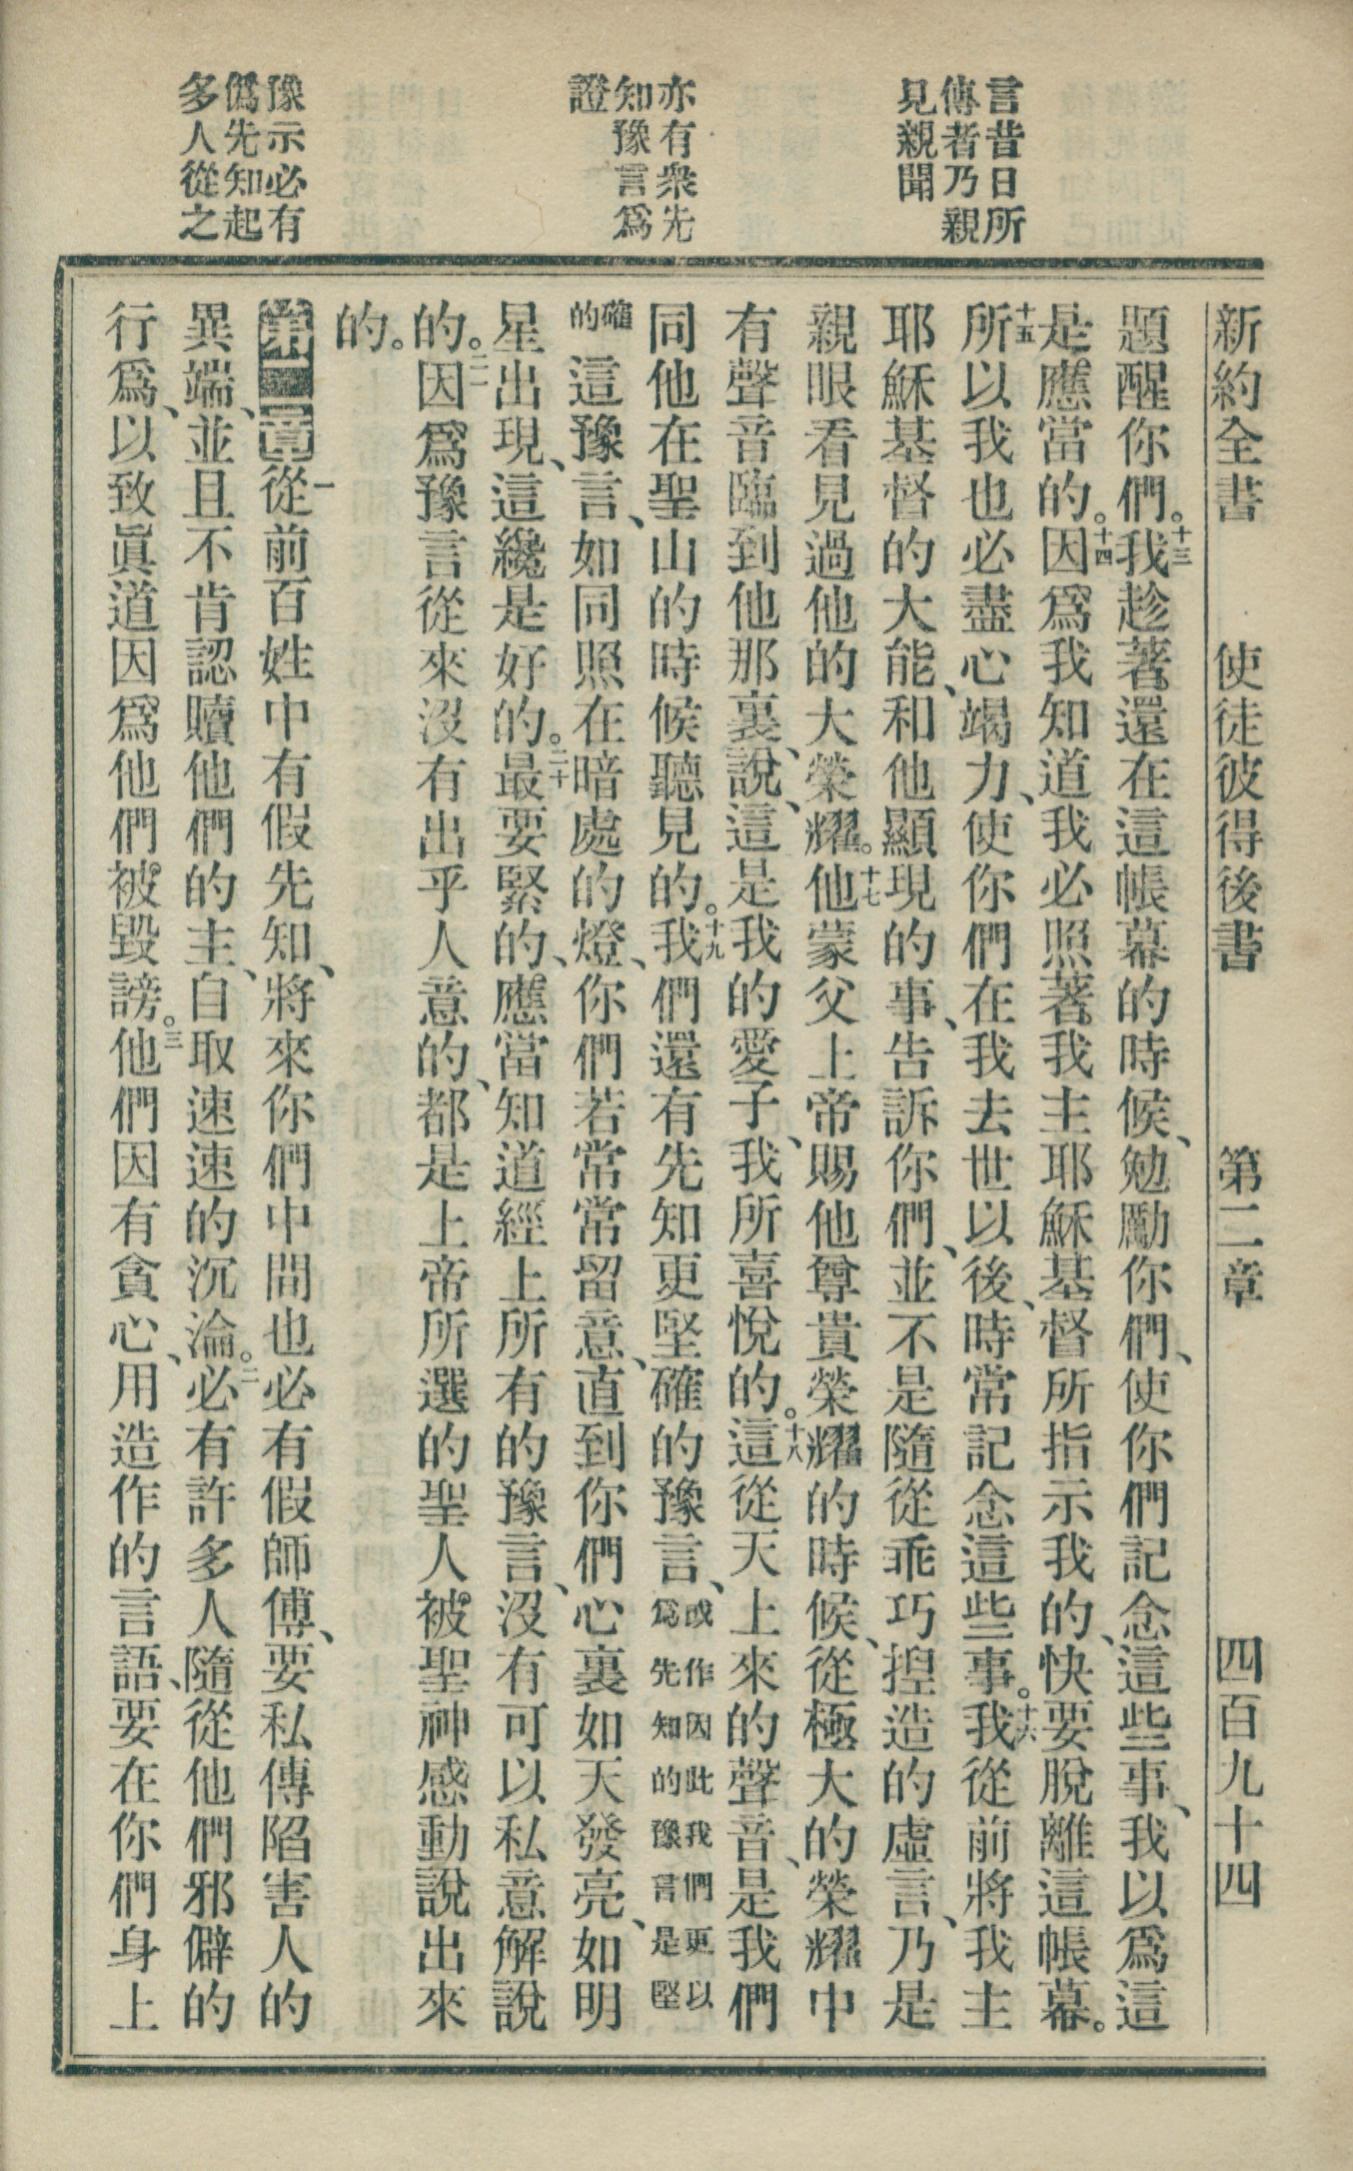 言昔日所
傳者乃親
見親聞
亦有衆先
知豫言爲
證
豫示必有
僞先知起
多人從之
新約全書 使徒彼得後書 第二章 四百九十四
題醒你們。十三我趁著還在這帳幕的時候、勉勵你們、使你們記念這些事、我以爲這
是應當的。十四因爲我知道我必照著我主耶穌基督所指示我的、快要脫離這帳幕。
十五所以我也必盡心竭力、使你們在我去世以後、時常記念這些事。十六我從前將我主
耶穌基督的大能、和他顯現的事、告訴你們、並不是隨從乖巧揑造的虛言、乃是
親眼看見過他的大榮耀。十七他蒙父上帝賜他尊貴榮耀的時候、從極大的榮耀中
有聲音臨到他那裏、說、這是我的愛子、我所喜悅的。十八這從天上來的聲音、是我們
同他在聖山的時候聽見的。十九我們還有先知更堅確的豫言、或作因此我們更以爲先知的豫言是堅
確的這豫言、如同照在暗處的燈、你們若常常留意、直到你們心裏如天發亮、如明
星出現、這纔是好的。二十最要緊的、應當知道經上所有的豫言、沒有可以私意解說
的。二一因爲豫言從來沒有出乎人意的、都是上帝所選的聖人被聖神感動說出來
的。
第二章一從前百姓中有假先知、將來你們中間也必有假師傅、要私傳陷害人的
異端、並且不肯認贖他們的主、自取速速的沉淪。二必有許多人隨從他們邪僻的
行爲、以致眞道因爲他們被毀謗。三他們因有貪心、用造作的言語、要在你們身上